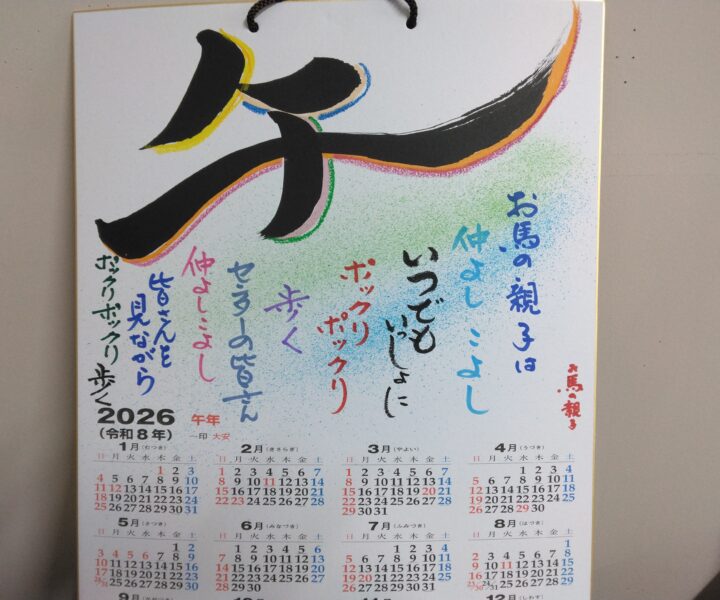 午
お馬の親子
お馬の親子は
仲よしこよし
いつでも
いっしょに
ポックリ
ポックリ
歩く
センターの皆さん
仲よしこよし
皆さんを
見ながら
ポックリポックリ歩く
2026 午年
(令和8年) 一印 大安
1月(むつき)
日 月 火 水 木 金 土
1 2 3
4 5 6 7 8 9 10
11 12 13 14 15 16 17
18 19 20 21 22 23 24
25 26 27 28 29 30 31
2月(きさらぎ)
日 月 火 水 木 金 土
1 2 3 4 5 6 7
8 9 10 11 12 13 14
15 16 17 18 19 20 21
22 23 24 25 26 27 28
3月(やよい)
日 月 火 水 木 金 土
1 2 3 4 5 6 7
8 9 10 11 12 13 14
15 16 17 18 19 20 21
22 23 24 25 26 27 28
29 30 31
4月(うづき)
日 月 火 水 木 金 土
1 2 3 4
5 6 7 8 9 10 11
12 13 14 15 16 17 18
19 20 21 22 23 24 25
26 27 28 29 30
5月(さつき)
日 月 火 水 木 金 土
1 2
3 4 5 6 7 8 9
10 11 12 13 14 15 16
17 18 19 20 21 22 23
24/31 25 26 27 28 29 30
6月(みなづき)
日 月 火 水 木 金 土
1 2 3 4 5 6
7 8 9 10 11 12 13
14 15 16 17 18 19 20
21 22 23 24 25 26 27
28 29 30
7月(ふみづき)
日 月 火 水 木 金 土
1 2 3 4
5 6 7 8 9 10 11
12 13 14 15 16 17 18
19 20 21 22 23 24 25
26 27 28 29 30 31
8月(はづき)
日 月 火 水 木 金 土
1
2 3 4 5 6 7 8
9 10 11 12 13 14 15
16 17 18 19 20 21 22
23/30 24/31 25 26 27 28 29
9月(ながつき)
12月(しわす)